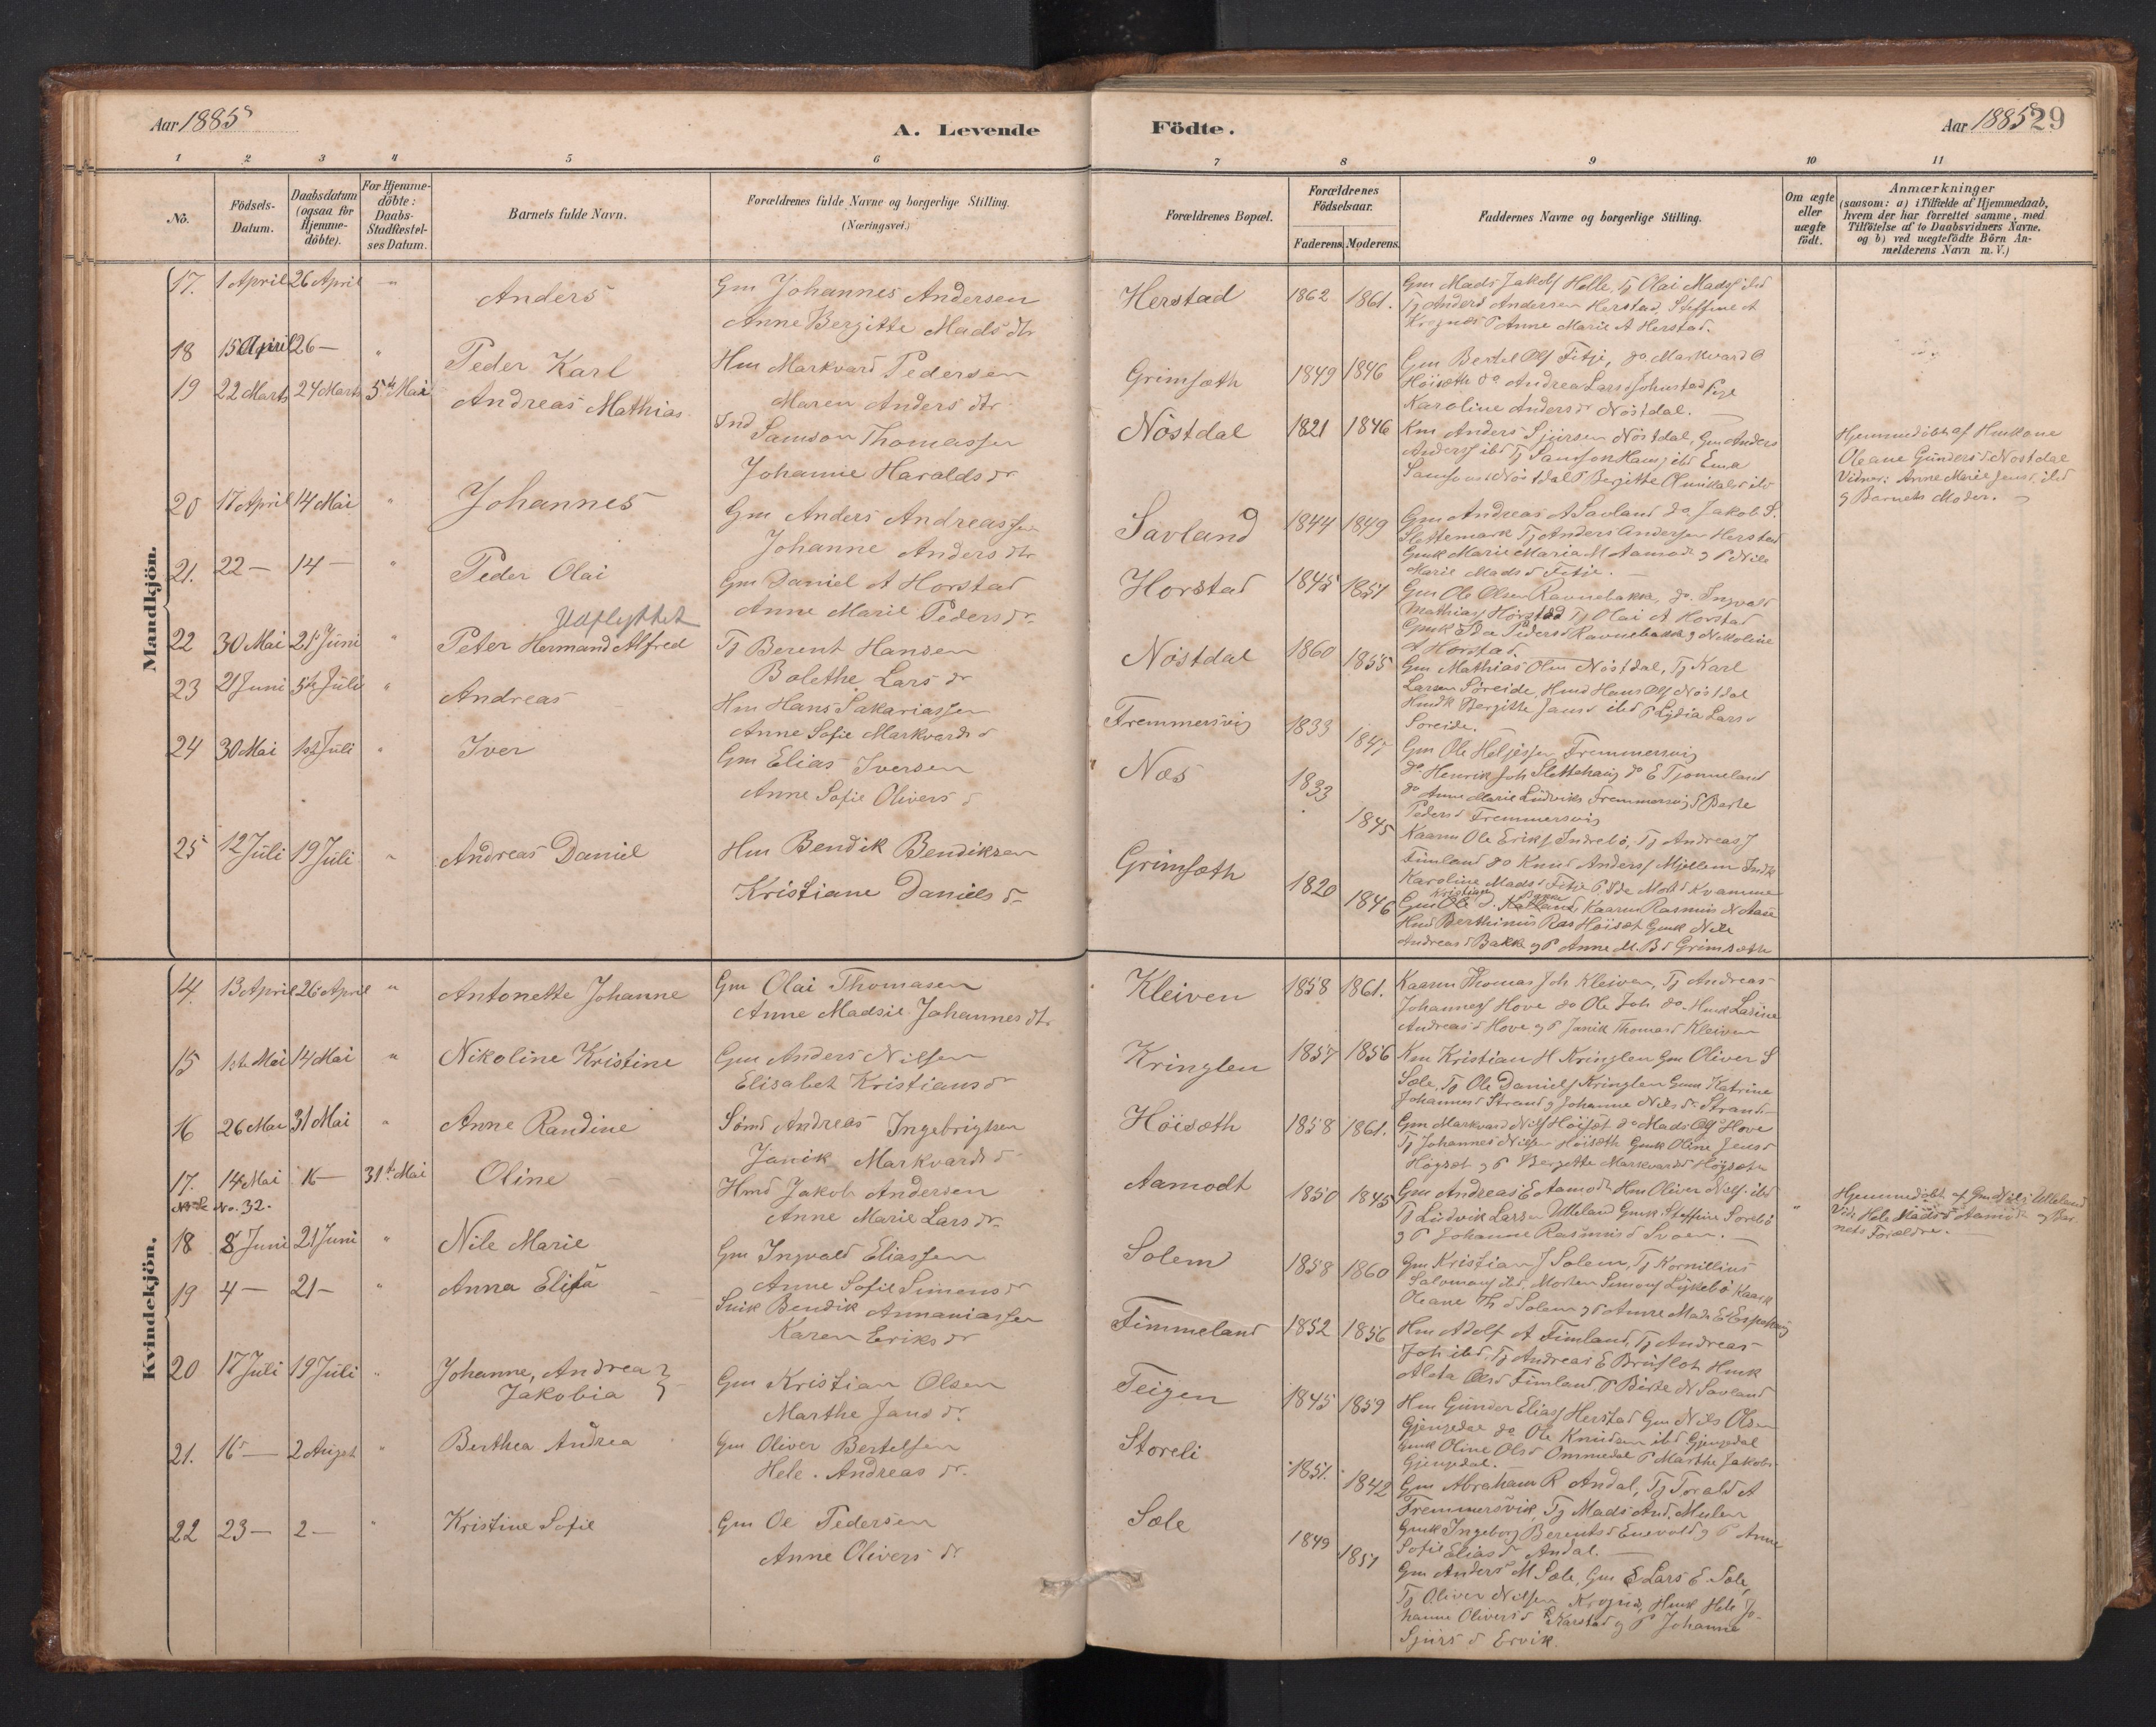 Aar 1885
A. Levende Födte.
Aar 1885 29
1 2 3 4 5 6 7 8 9 10 11
No.
Födsels-Datum.
Daabsdatum (ogsaa for Hjemme-döbte).
For Hjemme-döbte: Daabs-Stadfæstel-ses Datum.
Barnets fulde Navn.
Forældrenes fulde Navne og borgerlige Stilling. (Næringsvei.)
Forældrenes Bopæl.
Forældrenes Födselsaar.
Faderens Moderens
Faddernes Navne og borgerlige Stilling.
Om ægte eller uægte födt.
Anmærkninger
(saasom: a) i Tilfælde af Hjemmedaab,
hvem der har forrettet samme, med
Tilföielse af to Daabsvidners Navne.
og b) ved uægtefödte Börn An-
melderens Navn m. V.)
Mandkjön.
17. 1 April 26 April " Anders Gm Johannes Andersen Herstad 1862 1861.
Anne Bergitte Mads dtr
Gm Mads Jakobs Helle, Tj Olai Mads ibd
Tj Anders Andersen Herstad, Steffine A
P Anne Marie A Herstad.
18 15 April 26 — " Peder Karl Hm Markvard Pedersen Grimsæth 1849 1846
Maren Anders dtr
Gm Bertel Ols Fitje, do Markvard
Karoline Anders dr Nöstdal.
19 22 Marts 24 Marts 5te Mai Andreas Mathias Ind Samson Thomassen Nöstdal 1821 1846
Johanne Haralds dr
Km Anders Sjursen Nöstdal, Gm Anders
Hjemmedöbt af Hmkone
Oleane Gunders d Nöstdal
Vidner: Anne Marie Jens d ibd
g Barnets Moder.
20 17 April 14 Mai " Johannes Gm Anders Andreassen Savland 1844 1849
Johanne Anders dtr
Gm Andreas A Savland do Jakob S.
Slettemark Tj Anders Andersen Herstad
Marie Mads d Fitje.
21. 22 — 14 — " Peder Olai Gm Daniel A Horstad Horstad 1845 1851
Anne Marie Peders dr
Gm Ole Olsen Ravnebakk, do Ingvald
Mathias Horstad Tj Olai A Horstad
Gmk Ida Peders d Ravnebakk g Nikoline
A Horstad
Udflyttet
22 30 Mai 21 Juni " Peter Hermand Alfred Tj Berent Hansen Nöstdal 1860 1855
Bolethe Lars dr
Gm Mathias Olsen Nöstdal, Tj Karl
Larsen Söreide, Hmd Hans Ols Nöstdal
Hmdk Bergitte Jans d ibd P Lydia Lars d
Söreide.
23 21 Juni 5te Juli " Andreas Hm Hans Sakariassen Fremmersvig 1833 1847
Anne Sofie Markvards d
Gm Ole Helgesen Fremmersvig
do Henrik Joh Slettehaug do E Tjönneland
do Anne Marie Ludviks Fremmersvig P Berte
Peders d Fremmersvig
24 30 Mai 1ste Juli " Iver Gm Elias Iversen Næs 1833 1845
Anne Sofie Olivers d
Kaarm Ole Eriks Indrebö, Tj Andreas J
Timland do Knud Anders Mjellem Indk
Karoline Mads d Fitje P Ide Mons d Kvamme
25 12 Juli 19 Juli " Andreas Daniel Hm Bendik Bendiksen Grimsæth 1820 1846
Kristiane Daniels dr
Kaarm Rasmus N Aase
Hmd Berthinus Ras Höisæt Gmk Nile
Andreas d Bakk g P Anne M. B d Grimsæth
Kvindekjön.
14. 13 April 26 April " Antonette Johanne Gm Olai Thomasen Kleiven 1858 1861.
Anne Madsie Johannes dtr
Kaarm Thomas Joh Kleiven, Tj Andreas
Johannes Hove do Ole Joh do. Hmk Lasine
Andreas d Hove g P Janik Thomas d Kleiven
15 1ste Mai 14 Mai " Nikoline Kristine Gm Anders Nilsen Kringlen 1857 1856
Elisabet Kristians dr
Km Kristian H Kringlen Gm Oliver S
Sæle, Tj Ole Daniels Kringlen Gmk Katrine
Johannes d Strand g Johanne Nils d Strand
16 26 Mai 31 Mai " Anne Randine Sömd Andreas Ingebrigtsen Höisæth 1858 1861.
Janik Markvards d
Gm Markvard Nils Höisæt do Mads Ols Hove
Tj Johannes Nilsen Höisæth Gmk Oline Jens d
Högsæt g P Bergitte Markvards d Högsæt
17. 14 Mai 16 — 31te Mai Oline Hmd Jakob Andersen Aamodt 1850 1845
No. 32.
Anne Marie Lars dr.
Gm Andreas E Aamodt Hm Oliver Nils. ibd
Tj Ludvik Larsen Ulleland Gmk Steffine Sorebö
g P Johanne Rasmus d Svoen.
Hjemmedöbt af Gm Nils Ulleland
Vidn Hele Mads d Aamodt g Bar-
nets Forældre.
18 8 Juni 21 Juni " Nile Marie Gm Ingvald Eliassen Solem 1858 1860
Anne Sofie Simens dr
Gm Kristian J Solem, Tj Kornillius
Salomons ibd, Morten Simons Lykkebö Kaark
Oleane Th d Solem g P Anne Mads
19 4 — 21 — " Anna Elisa Smk Bendik Annaniassen Timmeland 1852 1856
Karen Eriks dr
Hm Adolf A Timland, Tj Andreas
Joh ibd. Tj Andreas E Bruflot Hmk
Alata Ols d Timland. P Birte N Savland
20 17 Juli 19 Juli " Johanne, Andrea Jakobia Gm Kristian Olsen Teigen 1845 1859
Marthe Jans dr.
Hm Gunder Elias Herstad Gm Nils Olsen
Gjengedal do Ole Knudsen ibd Gjengedal
Gmk Oline Ols d Ommedal P Marthe Jakobs
Gjengedal.
21. 16 — 2 August " Berthea Andrea Gm Oliver Bertelsen Storeli 1851. 1842
Hele. Andreas dr.
Gm Abraham R Andal, Tj Torald A
Fremmersvik, Tj Mads And. Mulen
Gmk Ingeborg Berents d Enevold g P Anne
Sofie Elias d Andal.
22 23 — 2 — " Kristine Sofie Gm Ole Pedersen Sæle 1849 1851
Anne Olivers dr
Gm Anders M Sæle, Gm Lars E Sæle,
Tj Oliver Nilsen Hmk Hele Jo-
hanne Olivers d Karstad g P Johanne
Sjurs d Ervik.